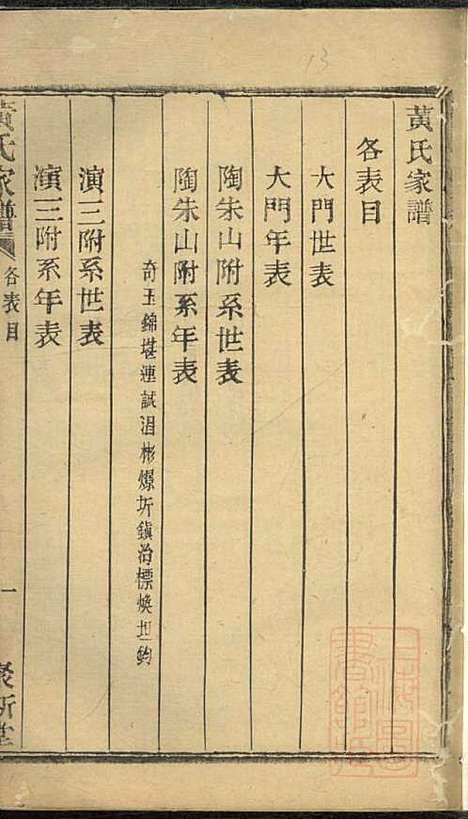 13
黃氏家譜
各表目
大門世表
大門年表
陶朱山附系世表
陶朱山附系年表
奇玉錦堪連誠湘彬爆圻鎮治標煥坦鈞
演三附系世表
演三附系年表
黃氏家譜
各表目
一